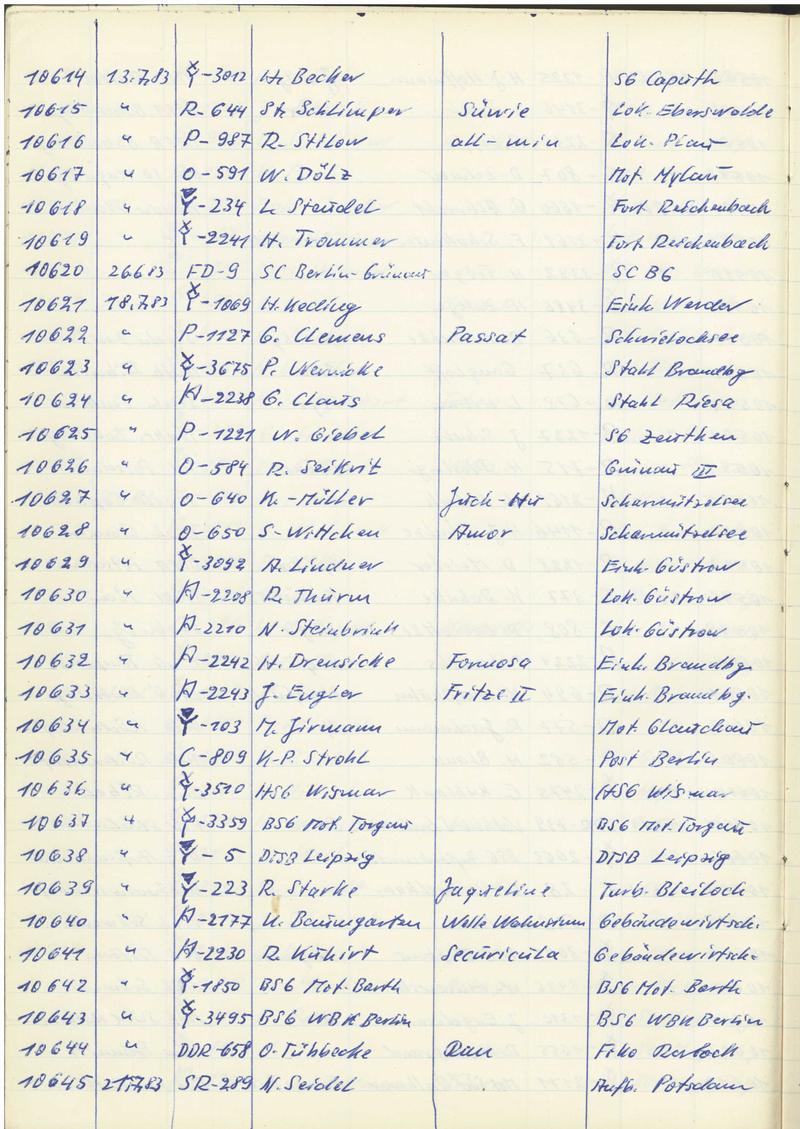 10614 13.7.83 Y-3012 H. Becker SG Caputh
10615 " R-644 St. Schlimper Lok. Eberswalde
10616 " P-987 R. Stilow all-min Lok. Plau
10617 " O-591 W. Dölz Mot. Mylau
10618 " Y-234 L. Steudel Fort. Reichenbach
10619 " Y-2241 H. Trommer Fort. Reichenbach
10620 26.6.83 FD-9 SC Berlin-Grünau SC BG
10621 18.7.83 Y-1069 H. Keding Einh. Werder
10622 " P-1127 G. Clemens Passat Schwielochsee
10623 " Y-3675 P. Wernicke Stahl Brandbg
10624 " H-2238 G. Claus Stahl Riesa
10625 " P-1221 W. Giebel SG Zeuthen
10626 " O-584 R. Seikrit Grünau III
10627 " O-640 K.-Müller Juch-Hu Scharmützelsee
10628 " O-650 S-Wittchen Amor Scharmützelsee
10629 " Y-3092 A. Lindner Einh. Güstrow
10630 " H-2208 R. Thürm Lok. Güstrow
10631 " H-2210 N. Steinbrink Lok. Güstrow
10632 " H-2242 H. Drensicke Formosa Einh. Brandbg
10633 " H-2243 J. Engler Fritze II Einh. Brandbg.
10634 " Y-103 M. Jirmann Mot. Glauchau
10635 " C-809 K-P. Strohl Post Berlin
10636 " Y-3510 HSG Wismar HSG Wismar
10637 " Y-3359 BSG Mot. Torgau BSG Mot. Torgau
10638 " Y-5 DTSB Leipzig DTSB Leipzig
10639 " Y-223 R. Starke Jaqueline Turb. Bleiloch
10640 " H-2177 K. Baumgarten Welle Gebäudewirtsch.
10641 " H-2230 R. Kühirt Securicula Gebäudewirtsch.
10642 " Y-1850 BSG Mot. Barth BSG Mot. Barth
10643 " Y-3495 BSG WBK Berlin BSG WBK Berlin
10644 " DDR-658 O. Tübbecke Ran Fiko Rostock
10645 21.7.83 SR-289 N. Seidel Aufb. Potsdam